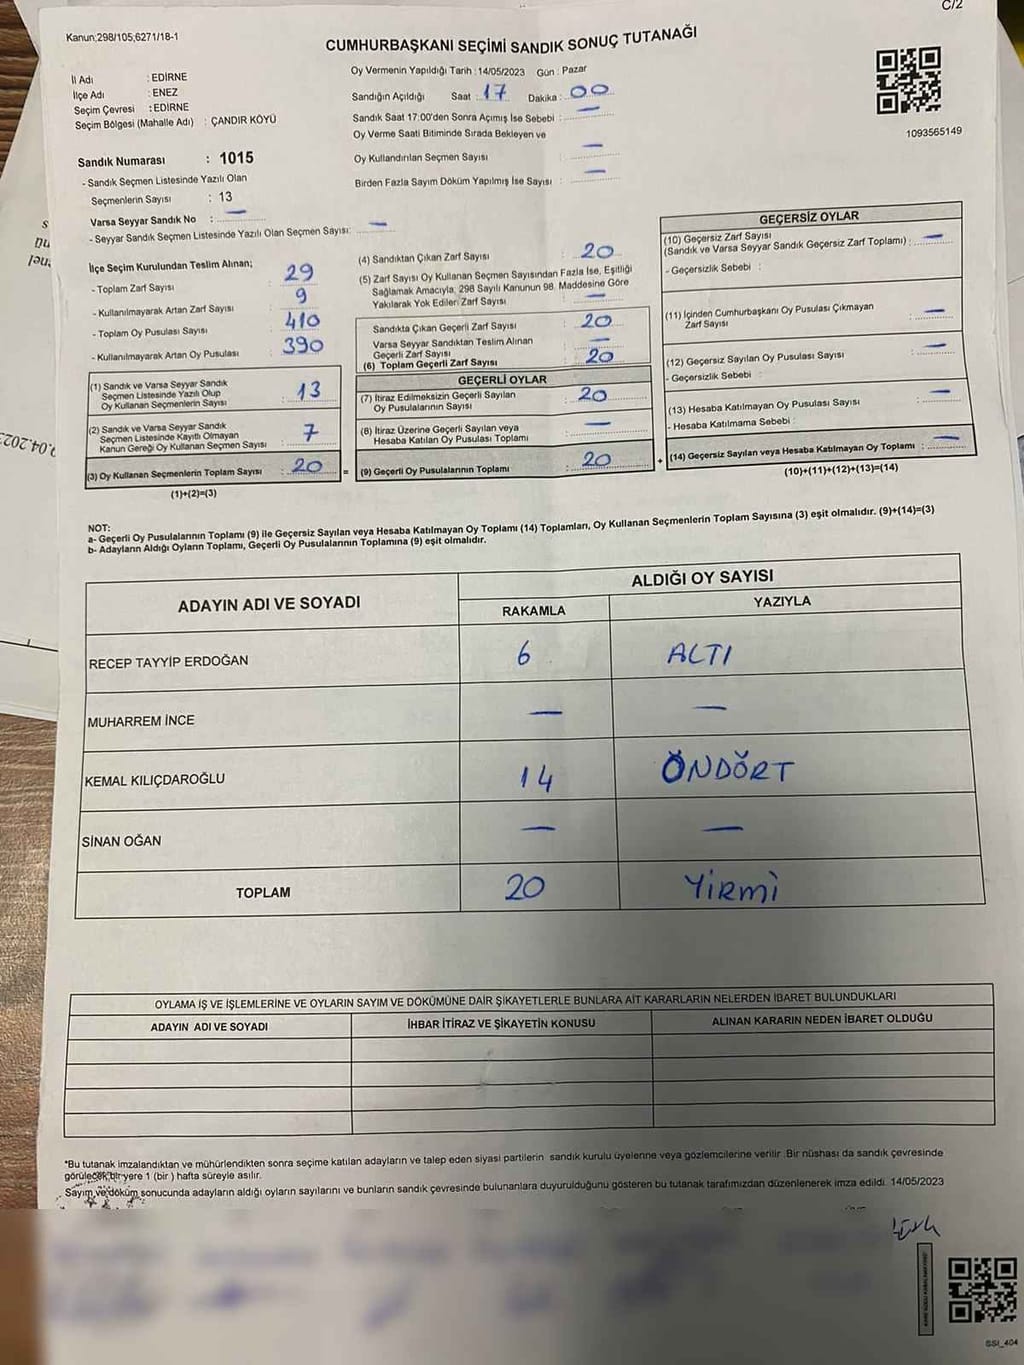 C/2
Kanun;298/105,6271/18-1
CUMHURBAŞKANI SEÇİMİ SANDIK SONUÇ TUTANAĞI
İl Adı : EDİRNE
İlçe Adı : ENEZ
Seçim Çevresi : EDİRNE
Seçim Bölgesi (Mahalle Adı) : ÇANDIR KÖYÜ
Sandık Numarası : 1015
- Sandık Seçmen Listesinde Yazılı Olan
Seçmenlerin Sayısı : 13
Varsa Seyyar Sandık No : —
- Seyyar Sandık Seçmen Listesinde Yazılı Olan Seçmen Sayısı: —
Oy Vermenin Yapıldığı Tarih : 14/05/2023 Gün : Pazar
Sandığın Açıldığı Saat : 17 Dakika : 00
Sandık Saat 17:00'den Sonra Açımış İse Sebebi : —
Oy Verme Saati Bitiminde Sırada Bekleyen ve
Oy Kullandırılan Seçmen Sayısı : —
Birden Fazla Sayım Döküm Yapılmış İse Sayısı : —
1093565149
İlçe Seçim Kurulundan Teslim Alınan;
- Toplam Zarf Sayısı : 29
- Kullanılmayarak Artan Zarf Sayısı : 9
- Toplam Oy Pusulası Sayısı : 410
- Kullanılmayarak Artan Oy Pusulası : 390
(1) Sandık ve Varsa Seyyar Sandık
Seçmen Listesinde Yazılı Olup
Oy Kullanan Seçmenlerin Sayısı : 13
(2) Sandık ve Varsa Seyyar Sandık
Seçmen Listesinde Kayıtlı Olmayan
Kanun Gereği Oy Kullanan Seçmen Sayısı : 7
(3) Oy Kullanan Seçmenlerin Toplam Sayısı : 20 =
(1)+(2)=(3)
(4) Sandıktan Çıkan Zarf Sayısı : 20
(5) Zarf Sayısı Oy Kullanan Seçmen Sayısından Fazla İse, Eşitliği
Sağlamak Amacıyla, 298 Sayılı Kanunun 98. Maddesine Göre
Yakılarak Yok Edilen Zarf Sayısı : —
Sandıkta Çıkan Geçerli Zarf Sayısı : 20
Varsa Seyyar Sandıktan Teslim Alınan
Geçerli Zarf Sayısı : —
(6) Toplam Geçerli Zarf Sayısı : 20
GEÇERLİ OYLAR
(7) İtiraz Edilmeksizin Geçerli Sayılan
Oy Pusulalarının Sayısı : 20
(8) İtiraz Üzerine Geçerli Sayılan veya
Hesaba Katılan Oy Pusulası Toplamı : —
(9) Geçerli Oy Pusulalarının Toplamı : 20 +
GEÇERSİZ OYLAR
(10) Geçersiz Zarf Sayısı
(Sandık ve Varsa Seyyar Sandık Geçersiz Zarf Toplamı) : —
- Geçersizlik Sebebi :
(11) İçinden Cumhurbaşkanı Oy Pusulası Çıkmayan
Zarf Sayısı : —
(12) Geçersiz Sayılan Oy Pusulası Sayısı : —
- Geçersizlik Sebebi :
(13) Hesaba Katılmayan Oy Pusulası Sayısı : —
- Hesaba Katılmama Sebebi :
(14) Geçersiz Sayılan veya Hesaba Katılmayan Oy Toplamı : —
(10)+(11)+(12)+(13)=(14)
NOT:
a- Geçerli Oy Pusulalarının Toplamı (9) ile Geçersiz Sayılan veya Hesaba Katılmayan Oy Toplamı (14) Toplamları, Oy Kullanan Seçmenlerin Toplam Sayısına (3) eşit olmalıdır. (9)+(14)=(3)
b- Adayların Aldığı Oyların Toplamı, Geçerli Oy Pusulalarının Toplamına (9) eşit olmalıdır.
ADAYIN ADI VE SOYADI
ALDIĞI OY SAYISI
RAKAMLA YAZIYLA
RECEP TAYYİP ERDOĞAN 6 ALTI
MUHARREM İNCE — —
KEMAL KILIÇDAROĞLU 14 ÖNDÖRT
SİNAN OĞAN — —
TOPLAM 20 YİRMİ
OYLAMA İŞ VE İŞLEMLERİNE VE OYLARIN SAYIM VE DÖKÜMÜNE DAİR ŞİKAYETLERLE BUNLARA AİT KARARLARIN NELERDEN İBARET BULUNDUKLARI
ADAYIN ADI VE SOYADI İHBAR İTİRAZ VE ŞİKAYETİN KONUSU ALINAN KARARIN NEDEN İBARET OLDUĞU
*Bu tutanak imzalandıktan ve mühürlendikten sonra seçime katılan adayların ve talep eden siyasi partilerin sandık kurulu üyelerine veya gözlemcilerine verilir. Bir nüshası da sandık çevresinde
görülecek bir yere 1 (bir ) hafta süreyle asılır.
Sayım ve döküm sonucunda adayların aldığı oyların sayılarını ve bunların sandık çevresinde bulunanlara duyurulduğunu gösteren bu tutanak tarafımızdan düzenlenerek imza edildi. 14/05/2023
SSI_404